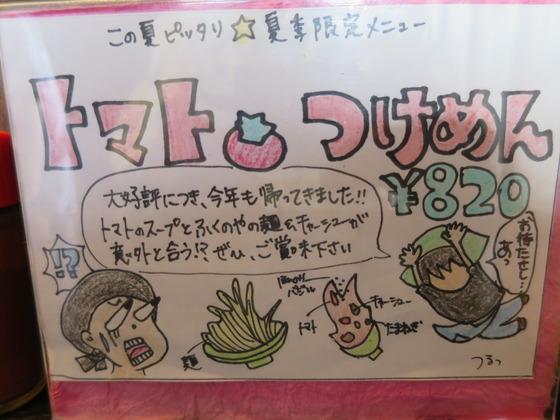 この夏ピッタリ☆夏季限定メニュー
トマト つけめん
¥820
大好評につき、今年も帰ってきました!!
トマトのスープとふくのやの麺&チャーシューが
意外と合う!?ぜひ、ご賞味下さい
!?
お待たせし…
あっ
ほんのり
バジル
チャーシュー
トマト
たまねぎ
麺
つるっ